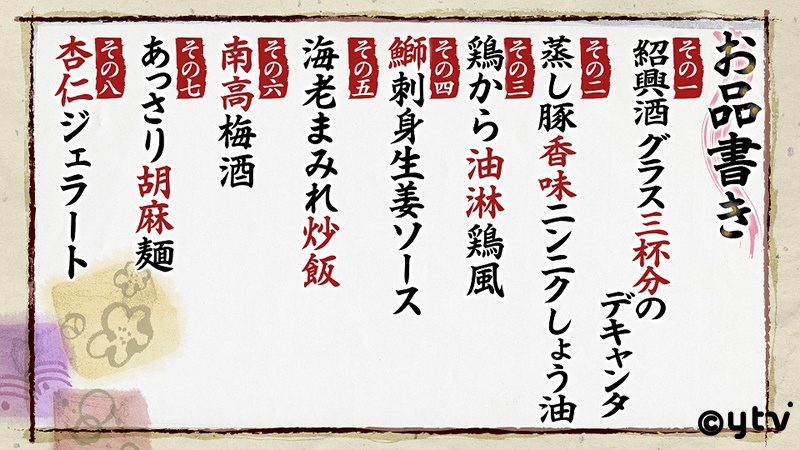 お品書き
その一
紹興酒 グラス三杯分の
デキャンタ
その二
蒸し豚香味ニンニクしょう油
その三
鶏から油淋鶏風
その四
鰤刺身生姜ソース
その五
海老まみれ炒飯
その六
南高梅酒
その七
あっさり胡麻麺
その八
杏仁ジェラート
©ytv